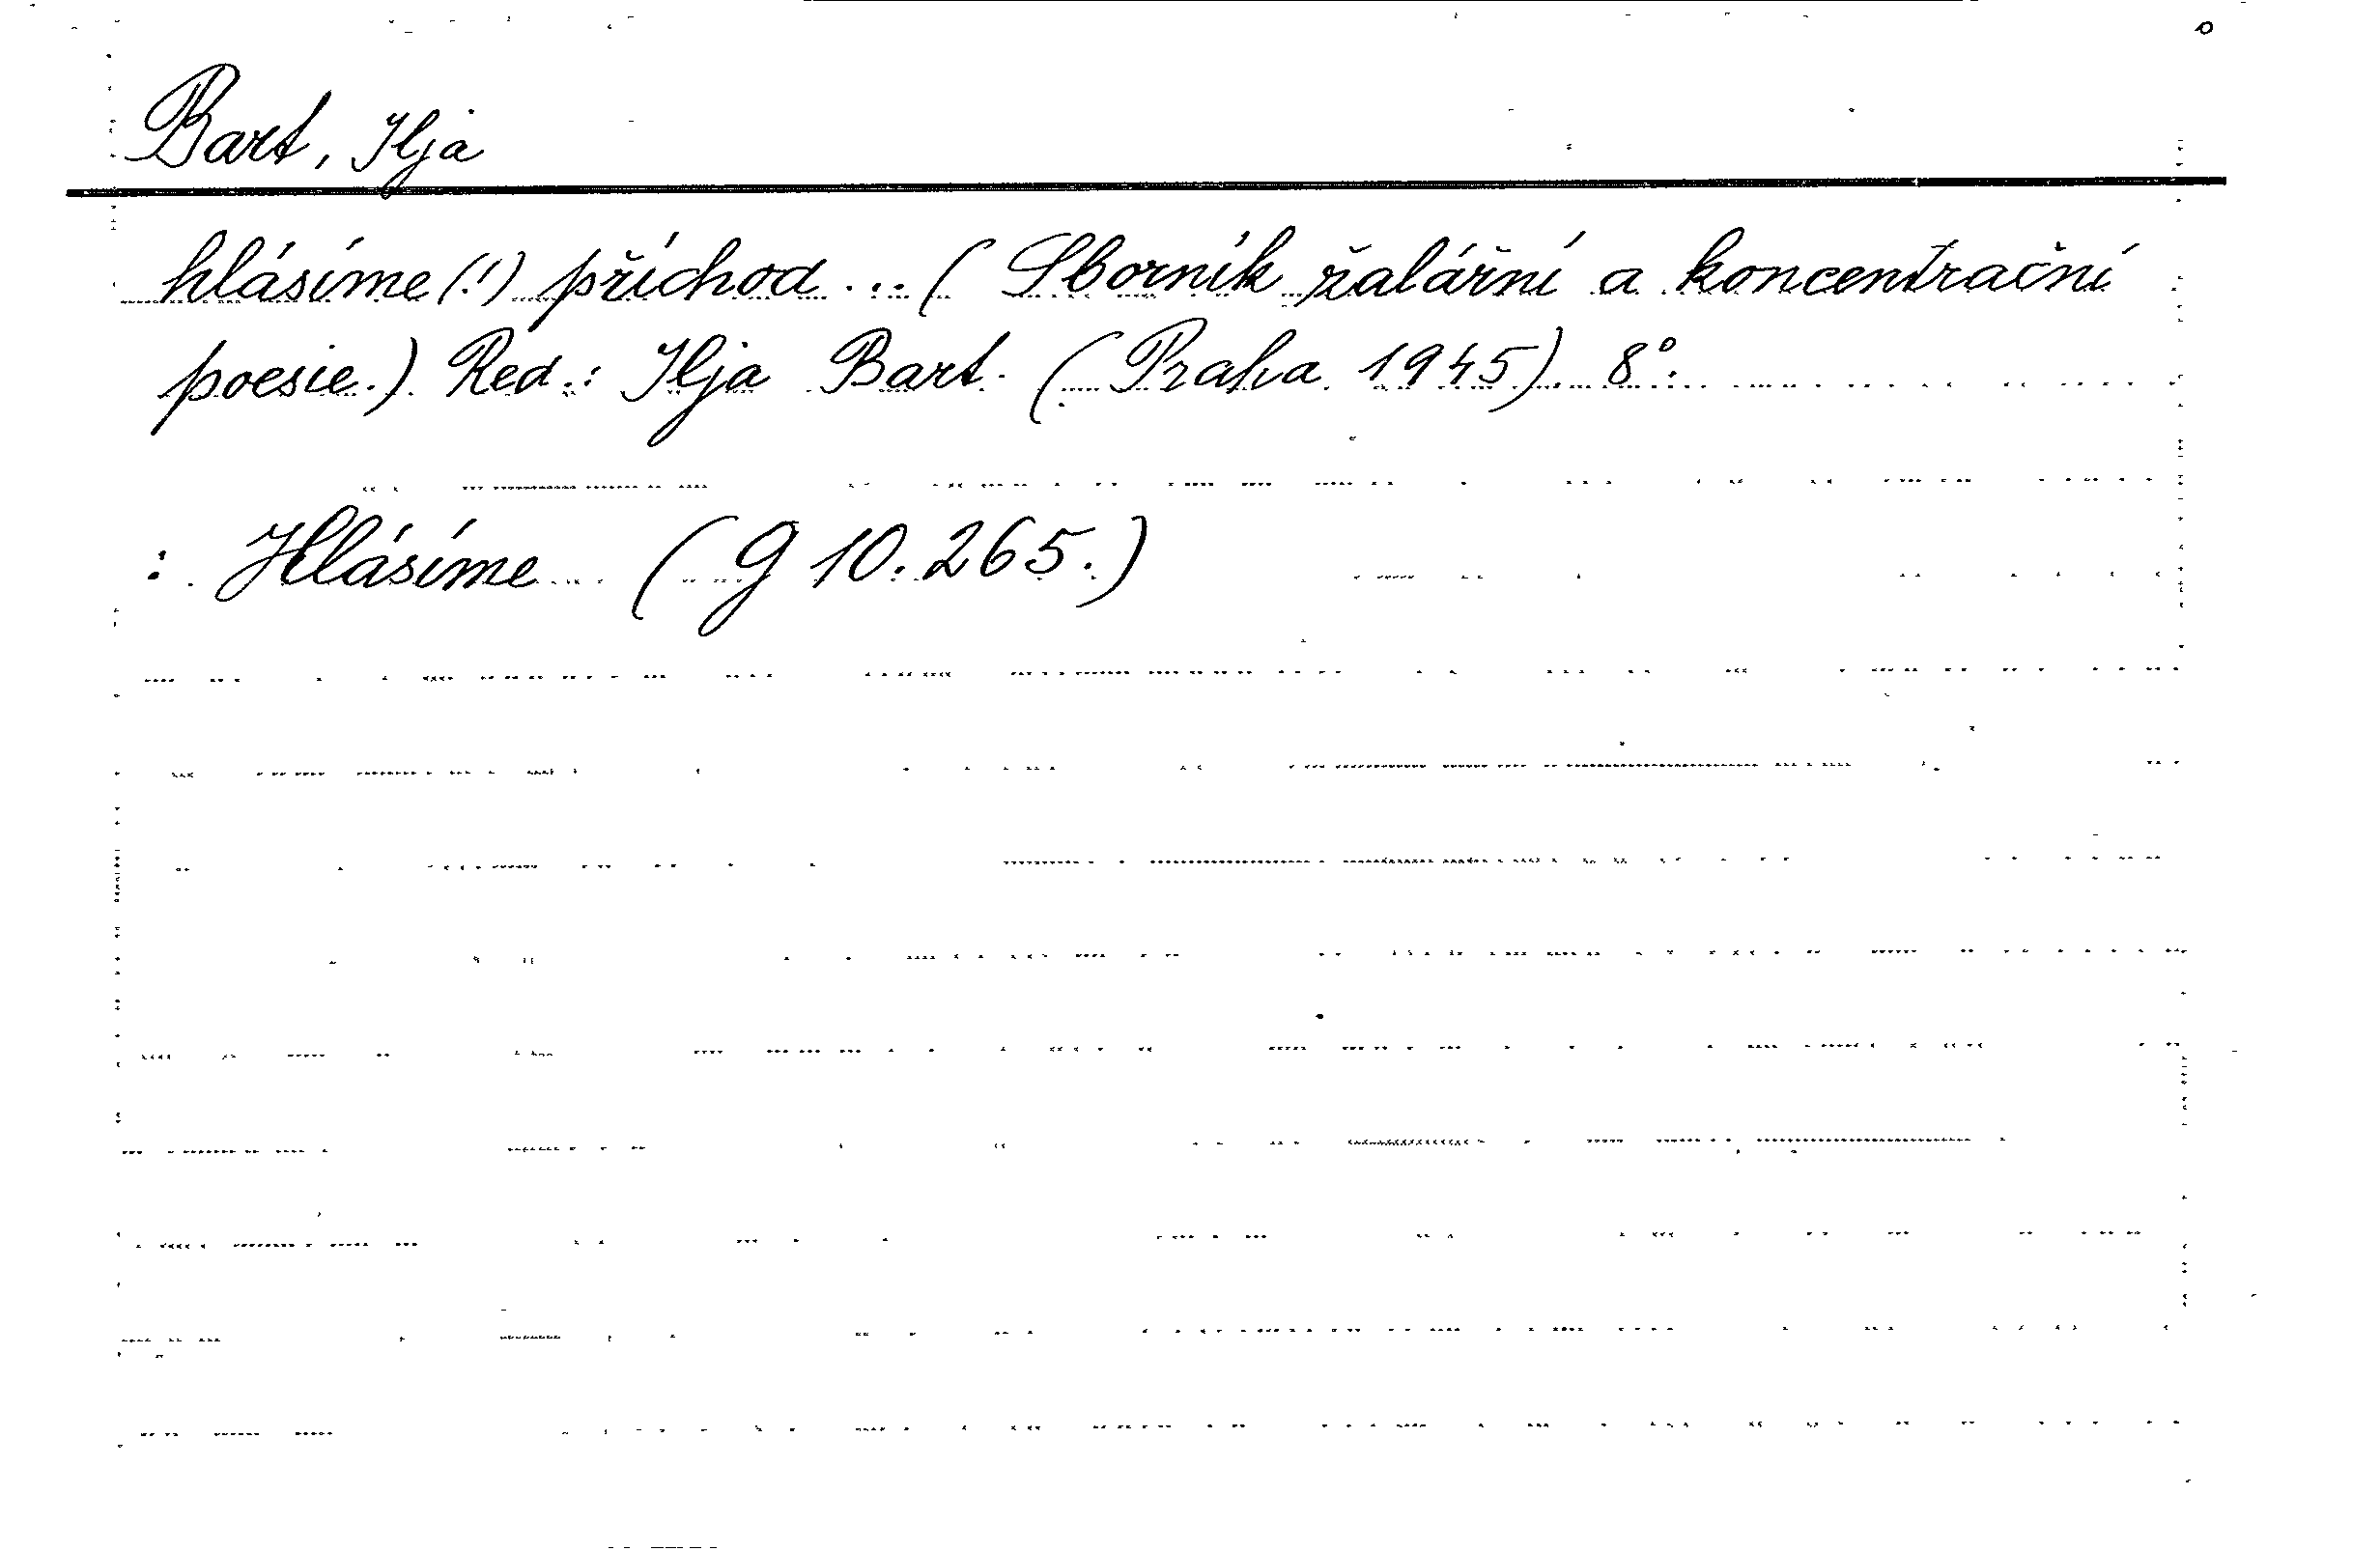 Bart, Ilja
hlásíme (!) příchod ... ( Sborník žalářní a koncentrační
poesie.) Red.: Ilja Bart. ( Praha 1945). 8°.
: Hlásíme ( G 10.265.)